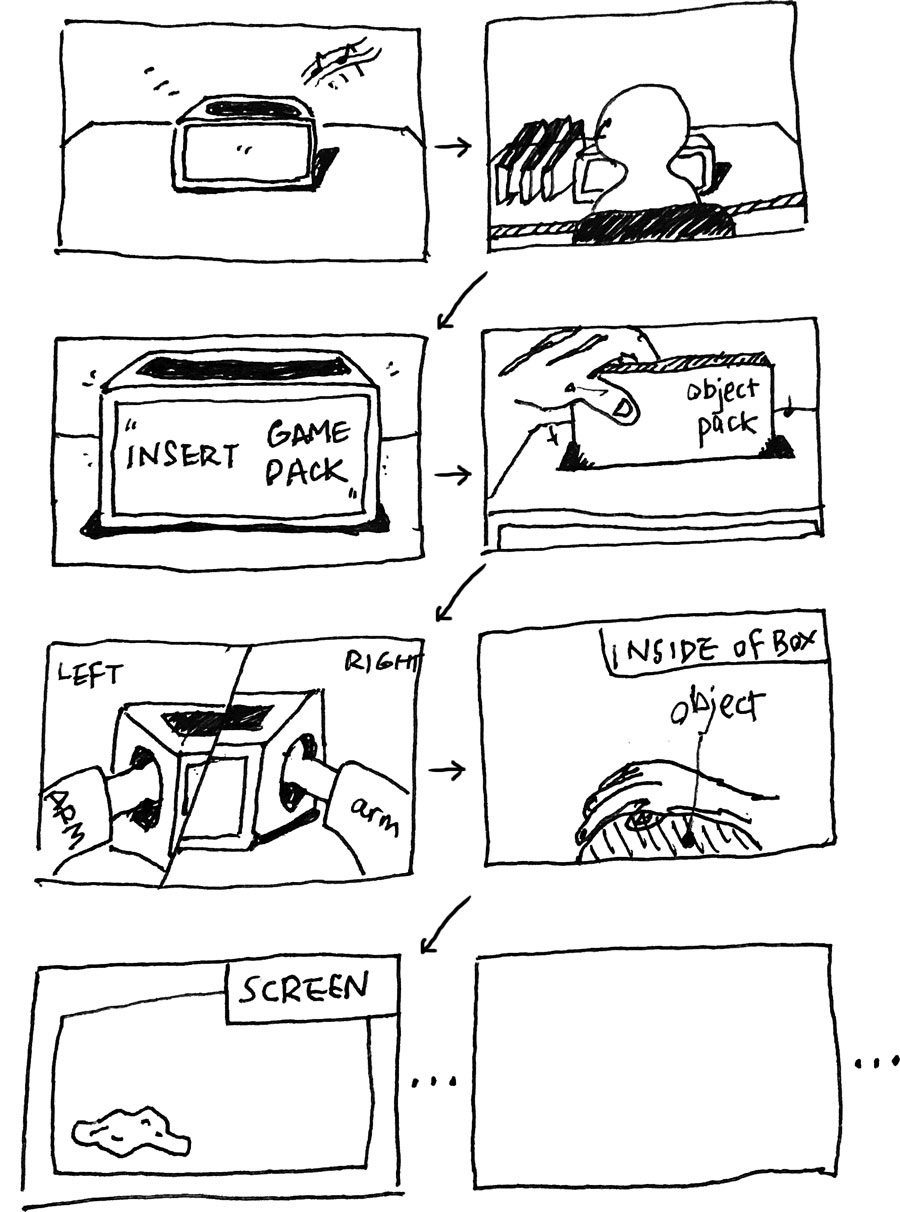 "INSERT GAME
PACK"
object
pack
LEFT
RIGHT
ARM
arm
INSIDE OF BOX
object
SCREEN
...
...